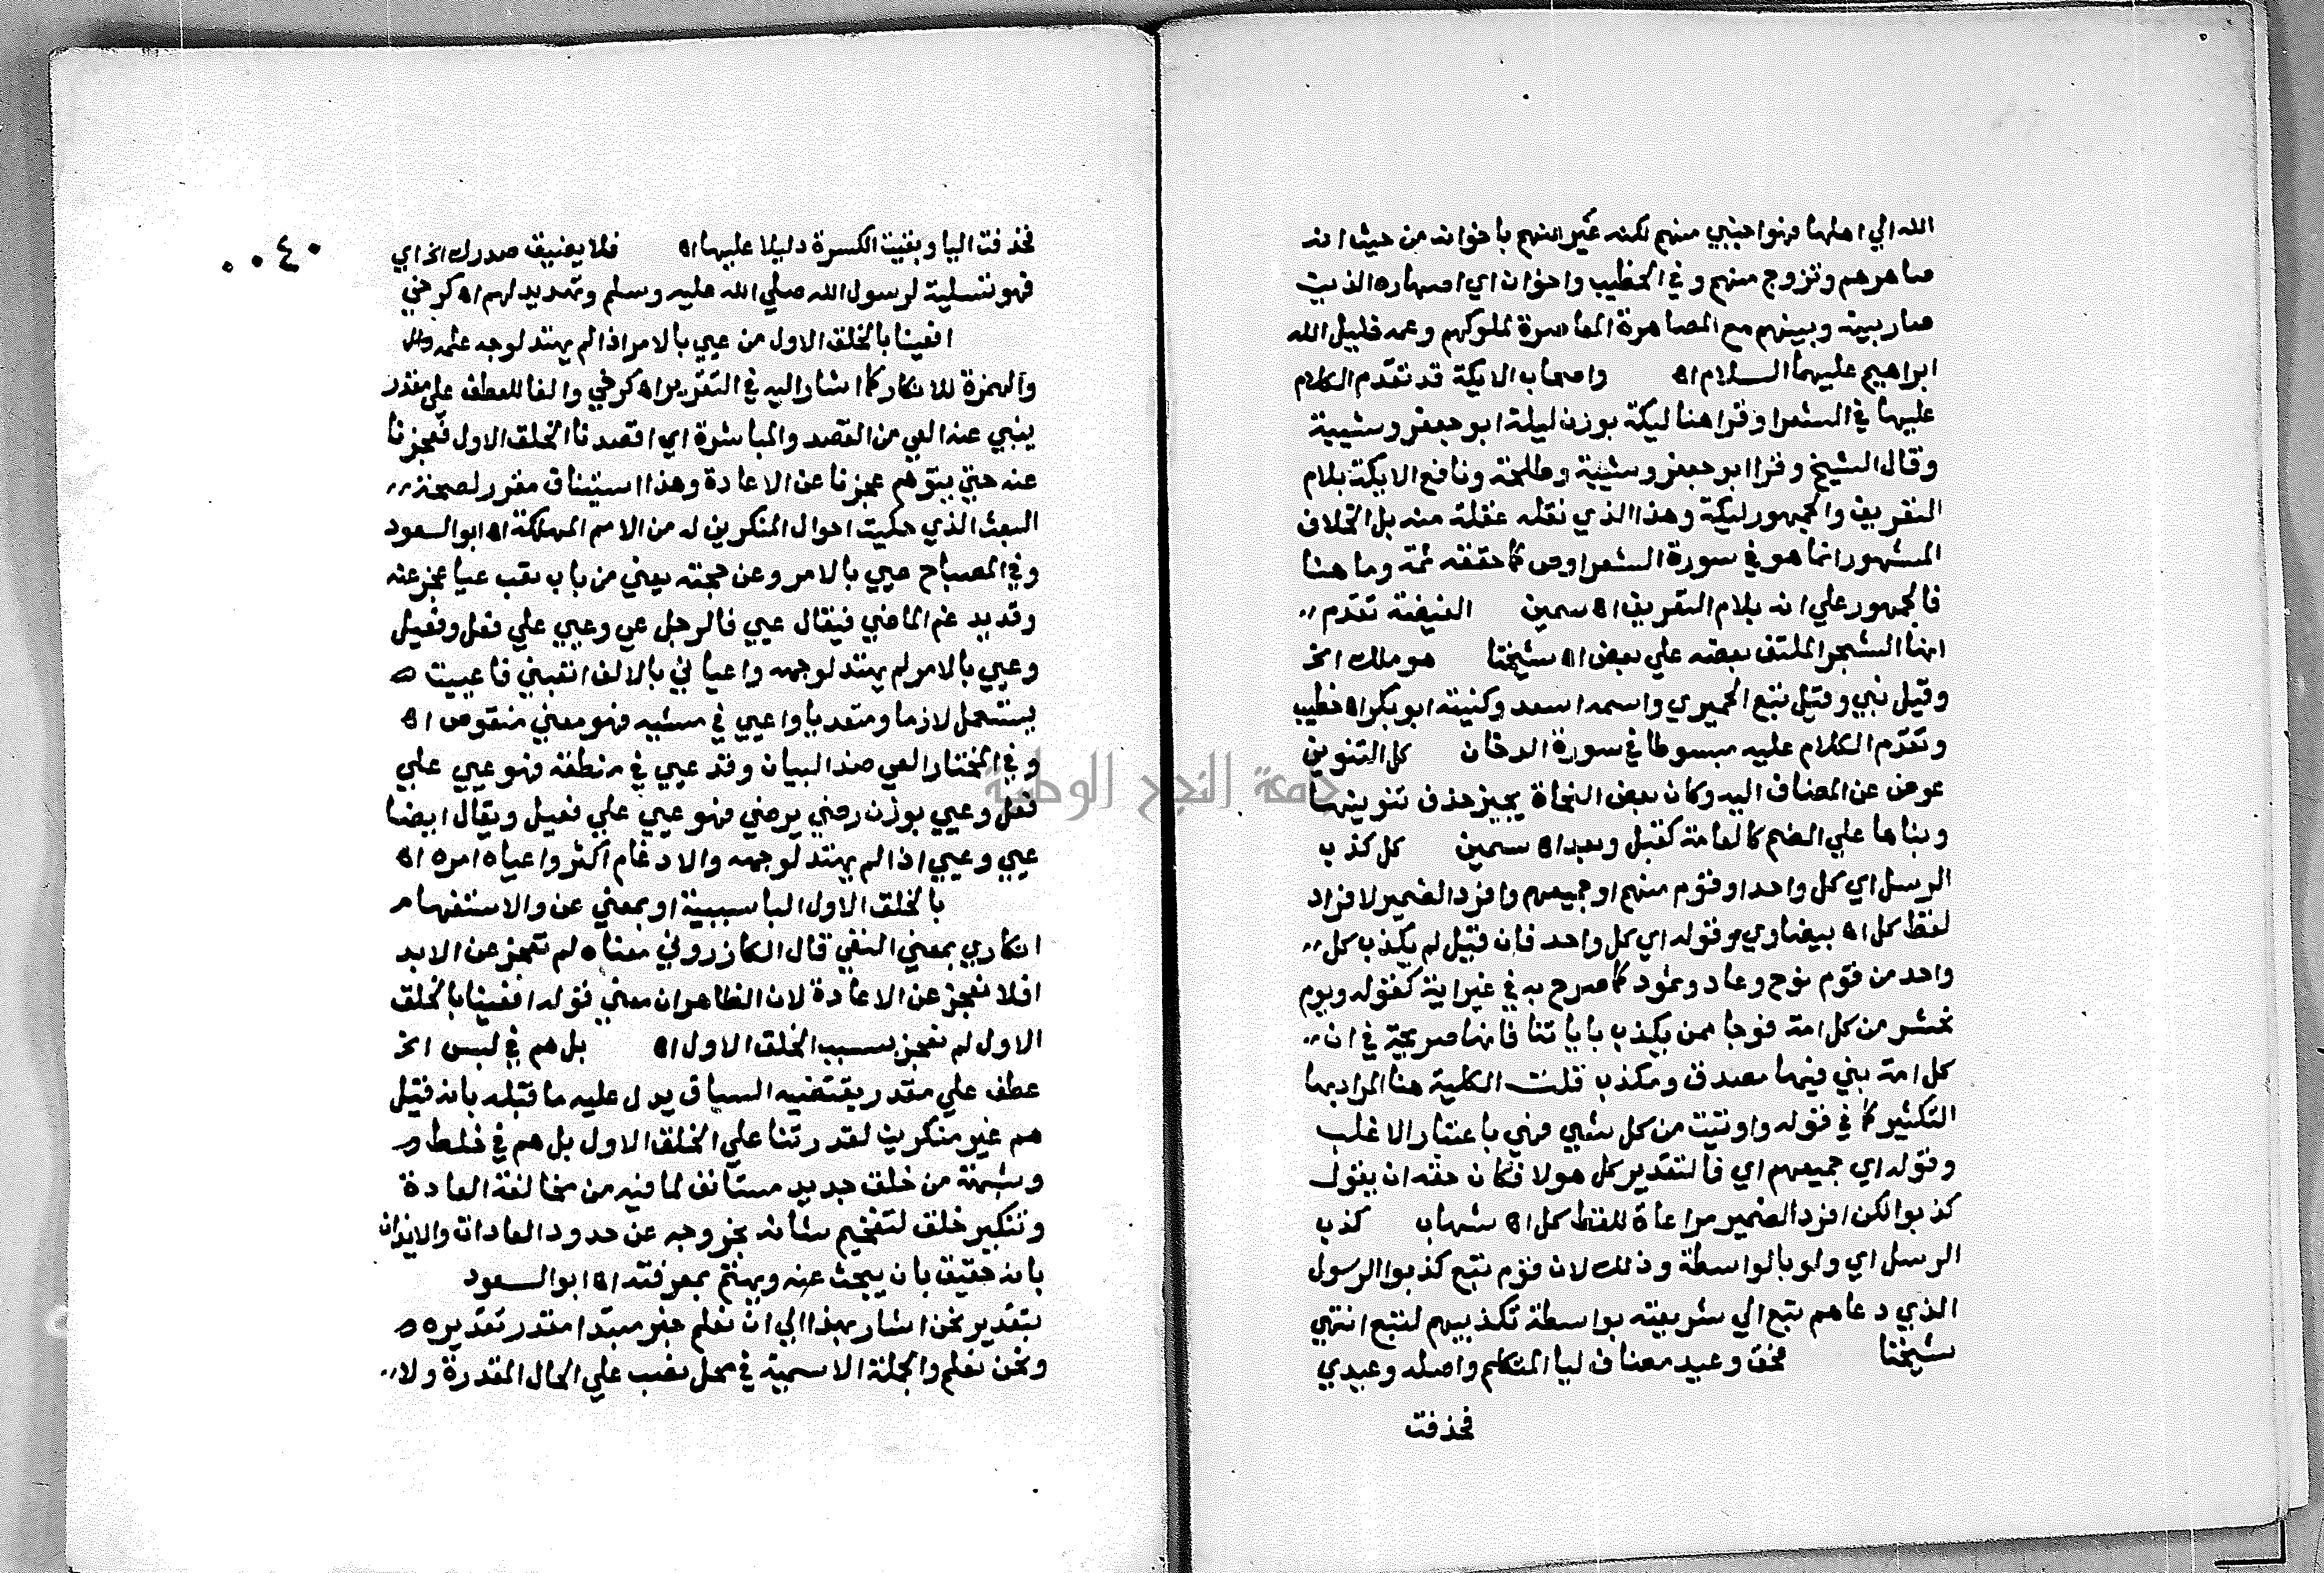 الله الي اهلها فهو اجنبي منهم لكنه عبر عنهم باخوانه من حيث انه
صاهرهم وتزوج منهم وفي الخطيب واخوان اي اصهاره الذين
صار بينه وبينهم مع المصاهرة المناصرة لملوكهم وعمه خليل الله
ابراهيم عليهما السلام اه واصحاب الايكة قد تقدم الكلام
عليها في الشعرا وقرا هنا ليكة بوزن ليلة ابو جعفر وشيبة
وقال الشيخ وقرا ابو جعفر وشيبة وطلحة ونافع الايكة بلام
التعريف والجمهور ليكة وهذا الذي نقله غفلة منه بل الخلاف
المشهور انما هو في سورة الشعرا وص كما حققته ثمة وما هنا
فالجمهور علي انه بلام التعريف اه سمين الغيضة تقدم
انها الشجر الملتف بعضه علي بعض اه شيخنا هو ملك الخ
وقيل نبي وقيل تبع الحميري واسمه اسعد وكنيته ابو بكر اه خطيب
وتقدم الكلام عليه مبسوطا في سورة الدخان كل التنوين
عوض عن المضاف اليه وكان بعض النحاة يجيز حذف تنوينها
وبناها علي الضم كالغاية كقبل وبعد اه سمين كل كذب
الرسل اي كل واحد او قوم منهم او جميعهم وافرد الضمير لافراد
لفظ كل اه بيضاوي وقوله اي كل واحد فان قيل لم يكذب كل
واحد من قوم نوح وعاد وثمود كما صرح به في غير اية كقوله ويوم
نحشر من كل امة فوجا ممن يكذب باياتنا فانها صريحة في ان
كل امة نبي فيها مصدق ومكذب قلت الكلية هنا المراد بها
التكثير كما في قوله واوتيت من كل شي فهي باعتبار الاغلب
وقوله اي جميعهم اي فالتقدير كل هولا فكان حقه ان يقول
كذبوا لكن افرد الضمير مراعاة للفظ كل اه شهاب كذب
الرسل اي ولو بالواسطة وذلك لان قوم تبع كذبوا الرسول
الذي دعاهم تبع الي شريعته بواسطة تكذيبهم لتبع انتهي
شيخنا فحق وعيد مضاف ليا المتكلم واصله وعيدي
فحذفت
٠٤٠٠
فحذفت اليا وبقيت الكسرة دليلا عليها اه فلا يضيق صدرك الخ اي
فهو تسلية لرسول الله صلي الله عليه وسلم وتهديد لهم اه كرخي
افعيينا بالخلق الاول من عيي بالامر اذا لم يهتد لوجه عمله
والهمزة للانكار كما اشار اليه في التقرير اه كرخي والفا للعطف علي مقدر
ينبي عنه العي من القصد والمباشرة اي اقصدنا الخلق الاول فعجزنا
عنه حتي يتوهم عجزنا عن الاعادة وهذا استيناف مقرر لصحة
البعث الذي حكيت احوال المنكرين له من الامم المهلكة اه ابو السعود
وفي المصباح عيي بالامر وعن حجته يعيي من باب تعب عيا عجز عنه
وقد يدغم الماضي فيقال عي فالرجل عي وعيي علي فعل وفعيل
وعيي بالامر لم يهتد لوجهه واعياني بالالف اتعبني فاعييت
يستعمل لازما ومتعديا واعيي في مشيه فهو معيي منقوص اه
وفي المختار العي ضد البيان وقد عيي في منطقه فهو عي علي
فعل وعيي بوزن رضي يرضي فهو عيي علي فعيل ويقال ايضا
عي وعيي اذا لم يهتد لوجهه والادغام اكثر واعياه امره اه
بالخلق الاول البا سببية او بمعني عن والاستفهام
انكاري بمعني النفي قال الكازروني معناه لم نعجز عن الابد
افلا نعجز عن الاعادة لان الظاهر ان معني قوله افعيينا بالخلق
الاول لم نعجز بسبب الخلق الاول اه بل هم في لبس الخ
عطف علي مقدر يقتضيه السياق يدل عليه ما قبله بانه قيل
هم غير منكرين لقدرتنا علي الخلق الاول بل هم في خلط
وشبهة من خلق جديد مستانف لما فيه من مخالفة العادة
وتنكير خلق لتفخيم شانه بخروجه عن حدود العادات والايذان
بانه حقيق بان يبحث عنه ويهتم بمعرفته اه ابو السعود
بتقدير نحن اشار بهذا الي ان نعلم خبر مبتدا مقدر تقديره
ونحن نعلم والجملة الاسمية في محل نصب علي الحال المقدرة ولا
جامعة النجاح الوطنية